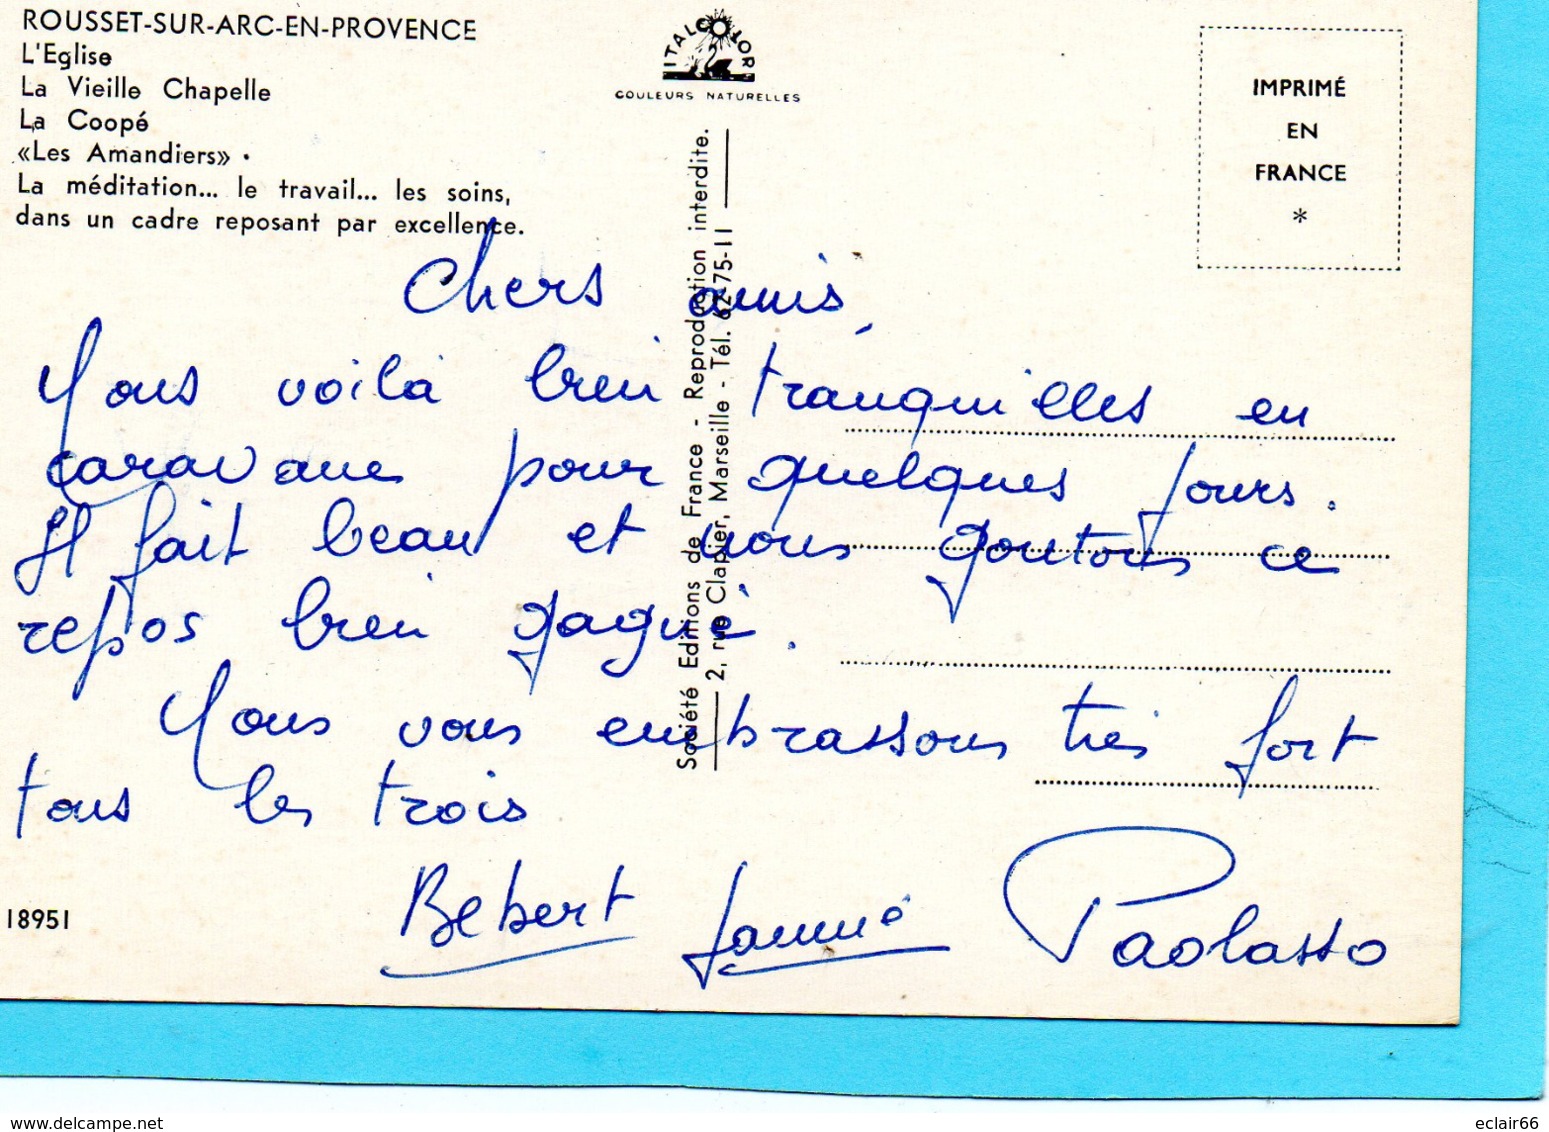 ROUSSET-SUR-ARC-EN-PROVENCE
L'Eglise
La Vieille Chapelle
La Coopé
«Les Amandiers» •
La méditation... le travail... les soins,
dans un cadre reposant par excellence.
ITALCOLOR
COULEURS NATURELLES
IMPRIMÉ
EN
FRANCE
*
Société Editions de France - Reproduction interdite.
2, rue Clapier, Marseille - Tél. 62-75-11
Chers amis,
Nous voilà bien tranquilles en
caravane pour quelques jours.
Il fait beau et nous goutons ce
repos bien gagné.
Nous vous embrassons très fort
tous les trois
Bebert Jammé Paolasso
18951
www.delcampe.net
eclair66